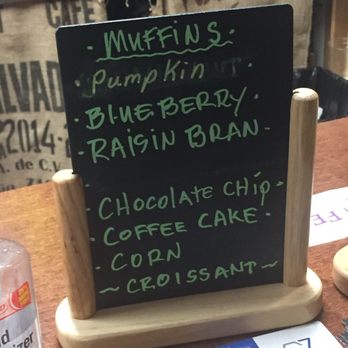 CAFE
LVAD
2014-
A. de C.V.
· MUFFINS ·
· Pumpkin
· BLUEBERRY ·
· RAISIN BRAN ·
· CHOCOLATE CHIP ·
· COFFEE CAKE ·
· CORN
~ CROISSANT ~